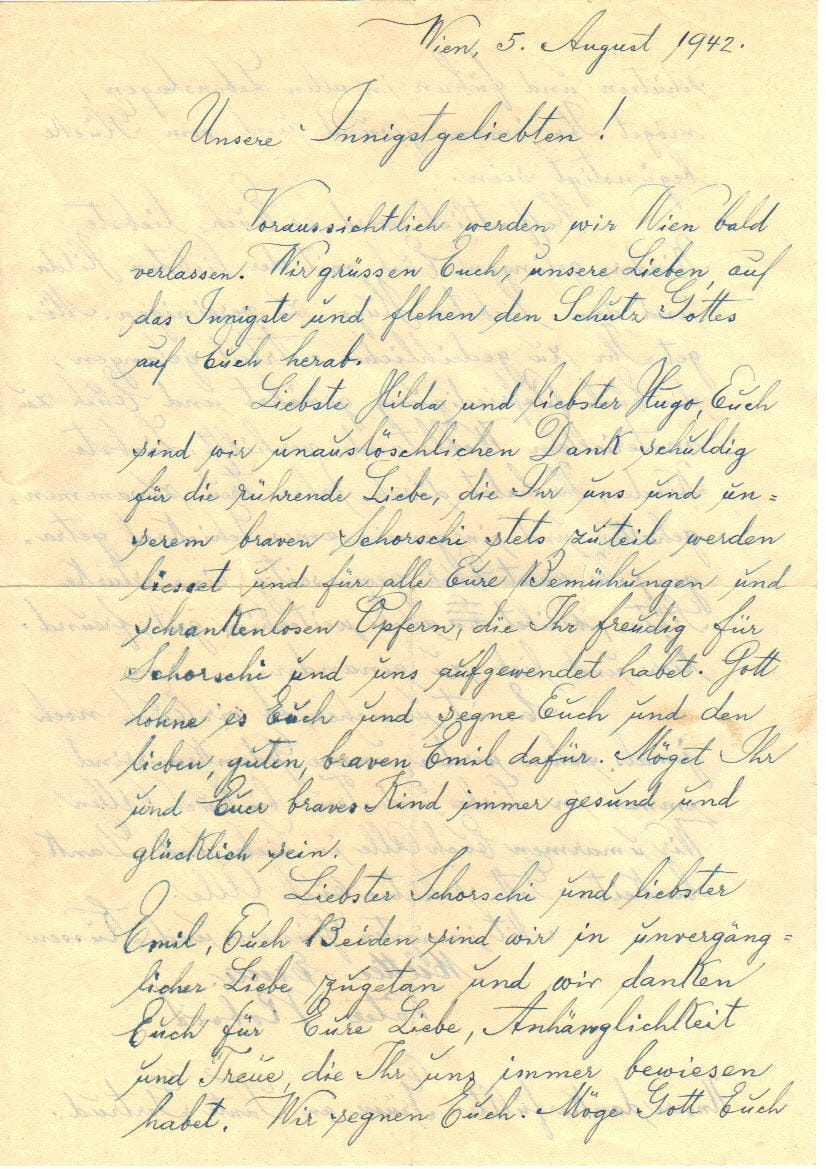 Wien, 5. August 1942.
Unsere Innigstgeliebten!
Voraussichtlich werden wir Wien bald
verlassen. Wir grüssen Euch, unsere Lieben, auf
das Innigste und flehen den Schutz Gottes
auf Euch herab.
Liebste Hilda und liebster Hugo, Euch
sind wir unauslöschlichen Dank schuldig
für die rührende Liebe, die Ihr uns und un=
serem braven Schorschi stets zuteil werden
liesset und für alle Eure Bemühungen und
schrankenlosen Opfern, die Ihr freudig für
Schorschi und uns aufgewendet habet. Gott
lohne es Euch und segne Euch und den
lieben, guten, braven Emil dafür. Möget Ihr
und Euer braves Kind immer gesund und
glücklich sein.
Liebster Schorschi und liebster
Emil, Euch Beiden sind wir in unvergäng=
licher Liebe zugetan und wir danken
Euch für Eure Liebe, Anhänglichkeit
und Treue, die Ihr uns immer bewiesen
habet. Wir segnen Euch. Möge Gott Euch